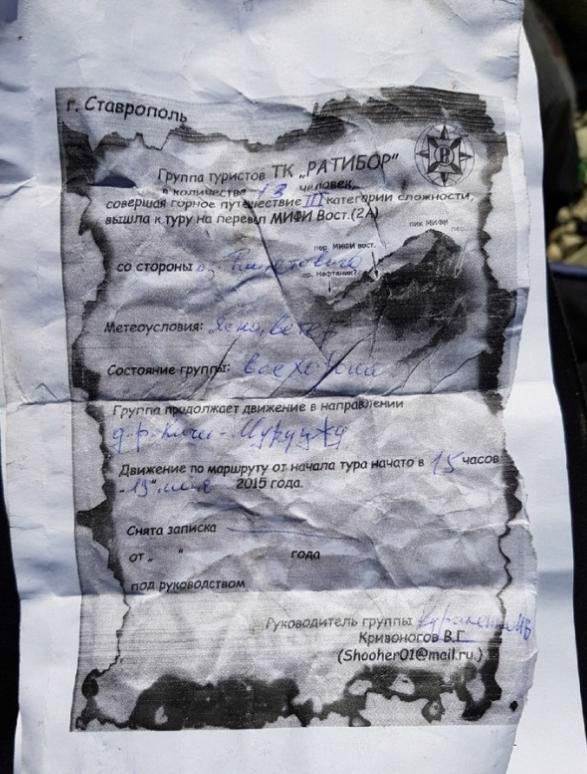 г. Ставрополь
Группа туристов ТК „РАТИБОР"
в количестве 13 человек,
совершая горное путешествие III категории сложности,
вышла к туру на перевал МИФИ Вост.(2А)
пик МИФИ
пер.
пер. МИФИ вост.
пер. Нефтяник?
со стороны
Метеоусловия: Ясно, ветер
Состояние группы: все хорошо
Группа продолжает движение в направлении
д.р. Кичи-Муруджу
Движение по маршруту от начала тура начато в 15 часов
"19" 2015 года.
Снята записка
от „ " года
под руководством
Руководитель группы
Кривоногов В.Г.
(Shooher01@mail.ru.)